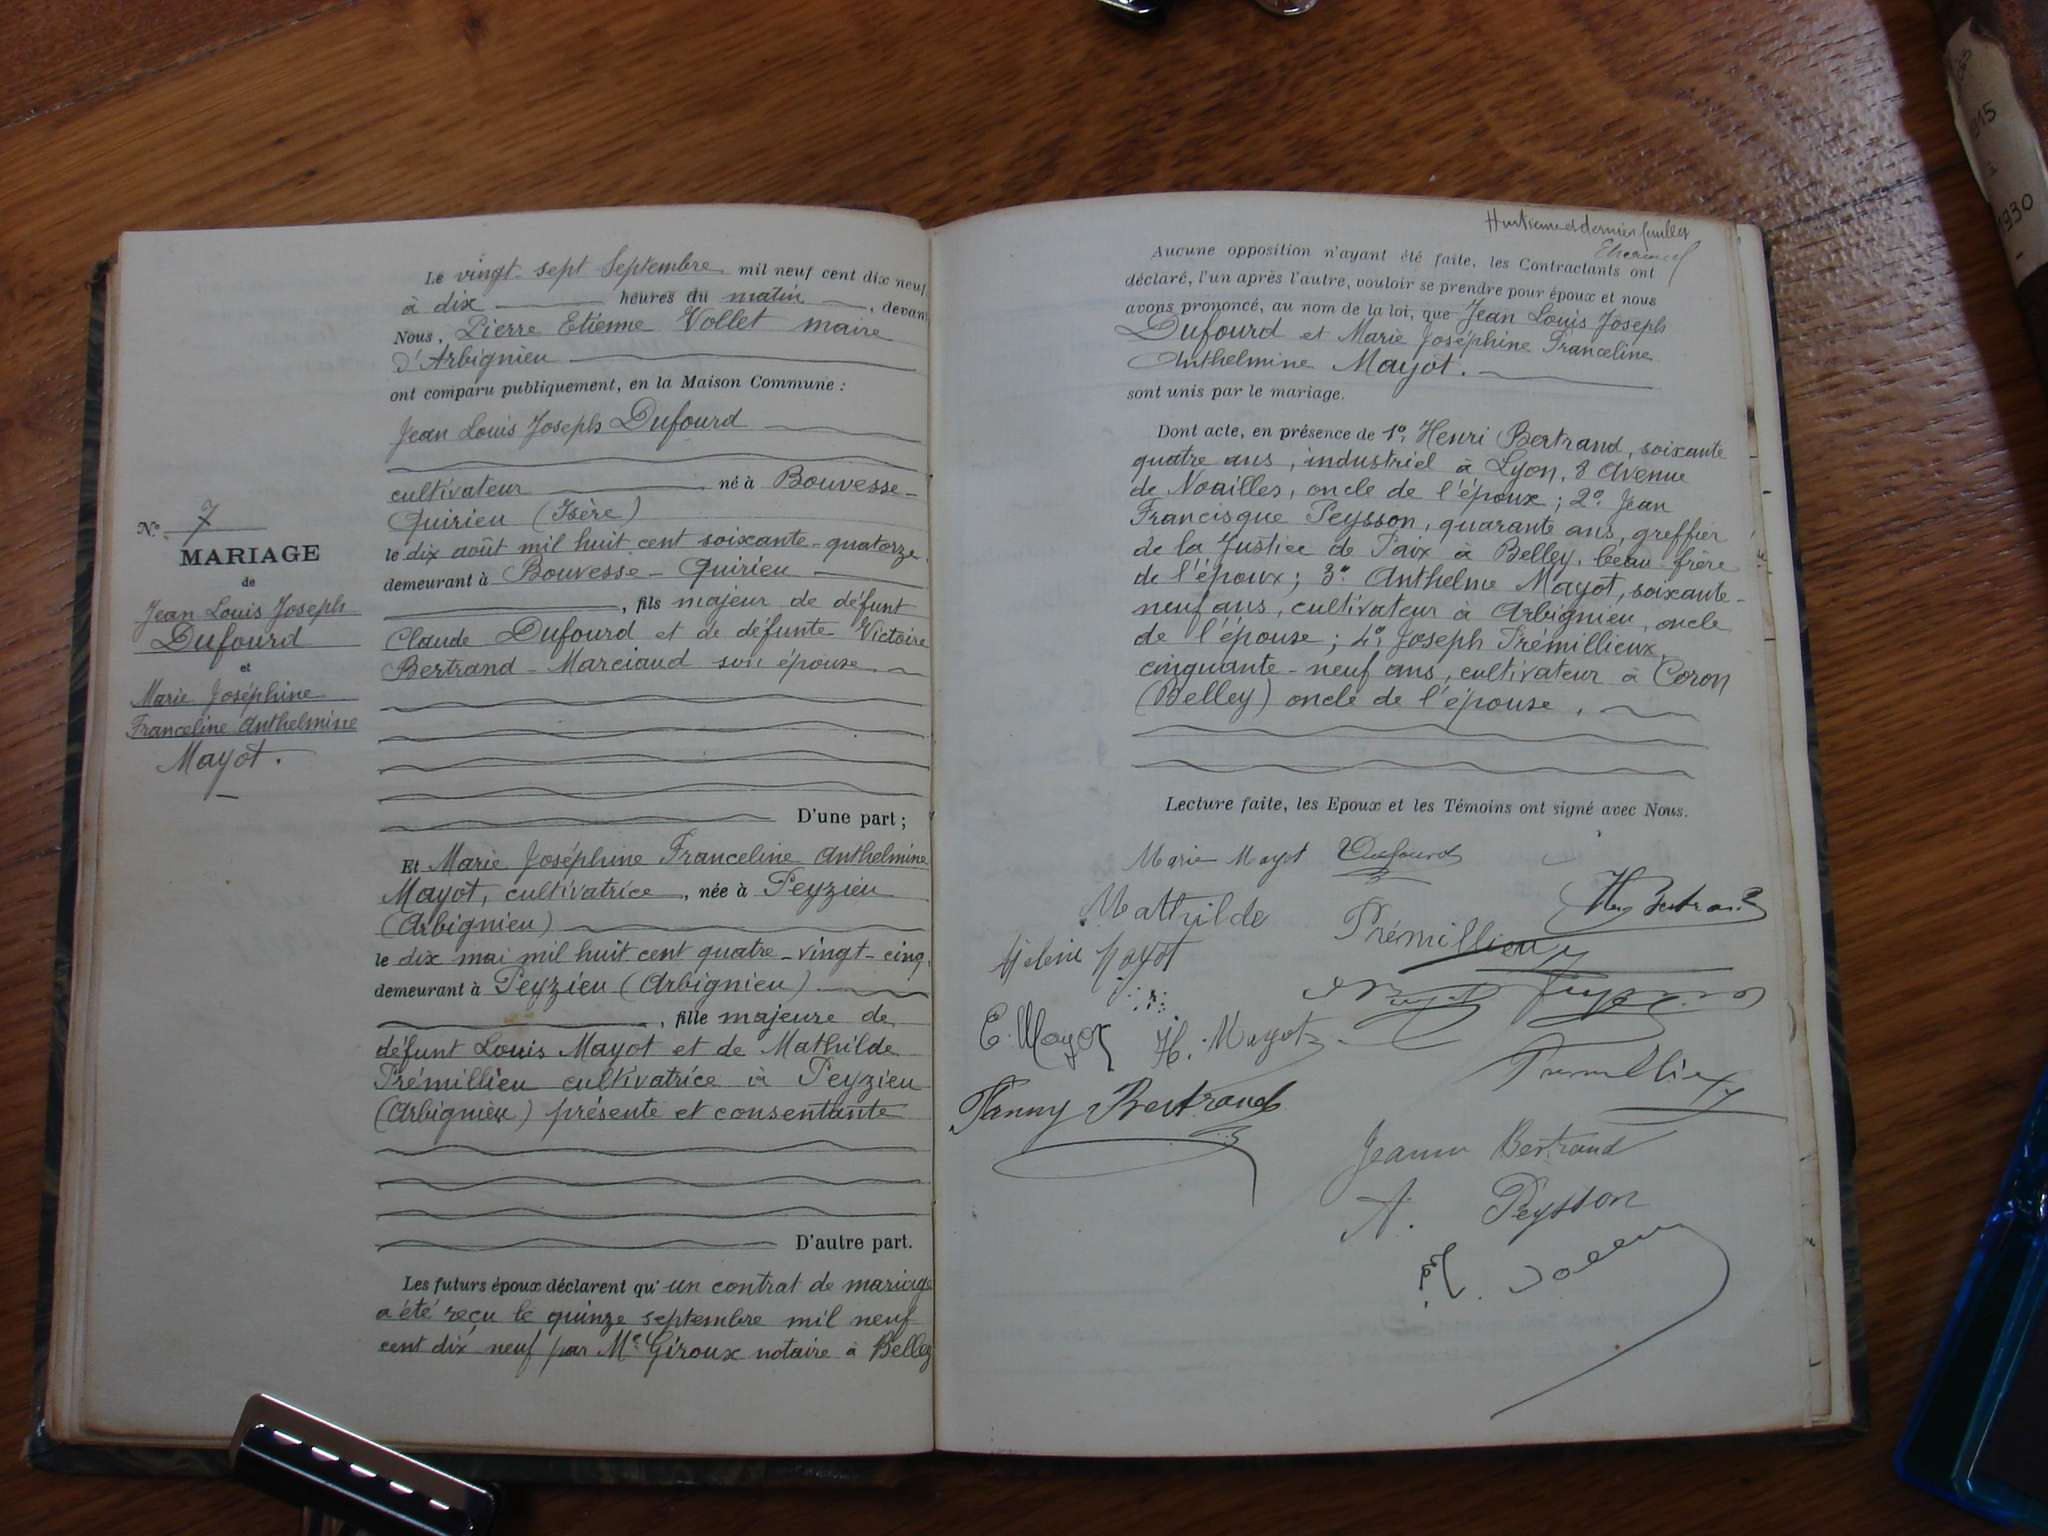 N° 7
MARIAGE
de
Jean Louis Joseph
Dufourd
et
Marie Joséphine
Franceline Anthelmine
Mayot.
Le vingt-sept Septembre mil neuf cent dix neuf
à dix heures du matin, devant
Nous, Pierre Etienne Vollet maire
d'Arbignieu
ont comparu publiquement, en la Maison Commune :
Jean Louis Joseph Dufourd
cultivateur né à Bouvesse-
Quirieu (Isère)
le dix août mil huit cent soixante-quatorze,
demeurant à Bouvesse-Quirieu
, fils majeur de défunt
Claude Dufourd et de défunte Victoire
Bertrand-Marciaud son épouse
D'une part ;
Et Marie Joséphine Franceline Anthelmine
Mayot, cultivatrice, née à Peyzieu
(Arbignieu)
le dix mai mil huit cent quatre-vingt-cinq,
demeurant à Peyzieu (Arbignieu)
, fille majeure de
défunt Louis Mayot et de Mathilde
Prémillieu cultivatrice à Peyzieu
(Arbignieu) présente et consentante
D'autre part.
Les futurs époux déclarent qu'un contrat de mariage
a été reçu le quinze septembre mil neuf
cent dix neuf par Me Giroux notaire à Belley
Huitième et dernier feuillet
Aucune opposition n'ayant été faite, les Contractants ont
déclaré, l'un après l'autre, vouloir se prendre pour époux et nous
avons prononcé, au nom de la loi, que Jean Louis Joseph
Dufourd et Marie Joséphine Franceline
Anthelmine Mayot.
sont unis par le mariage.
Dont acte, en présence de 1°, Henri Bertrand, soixante
quatre ans, industriel à Lyon, 8 Avenue
de Noailles, oncle de l'époux ; 2° Jean
Francisque Peysson, quarante ans, greffier
de la Justice de Paix à Belley, beau-frère
de l'époux ; 3° Anthelme Mayot, soixante-
neuf ans, cultivateur à Arbignieu, oncle
de l'épouse ; 4° Joseph Prémillieux,
cinquante-neuf ans, cultivateur à Coron
(Belley) oncle de l'épouse.
Lecture faite, les Epoux et les Témoins ont signé avec Nous.
Marie Mayot Dufourd
Hy Bertrand
Mathilde Prémillieu
Hélène Mayot
E. Mayot H. Mayot
Fanny Bertrand
Prémillieux
Jeanne Bertrand
A. Peysson
1915
1930